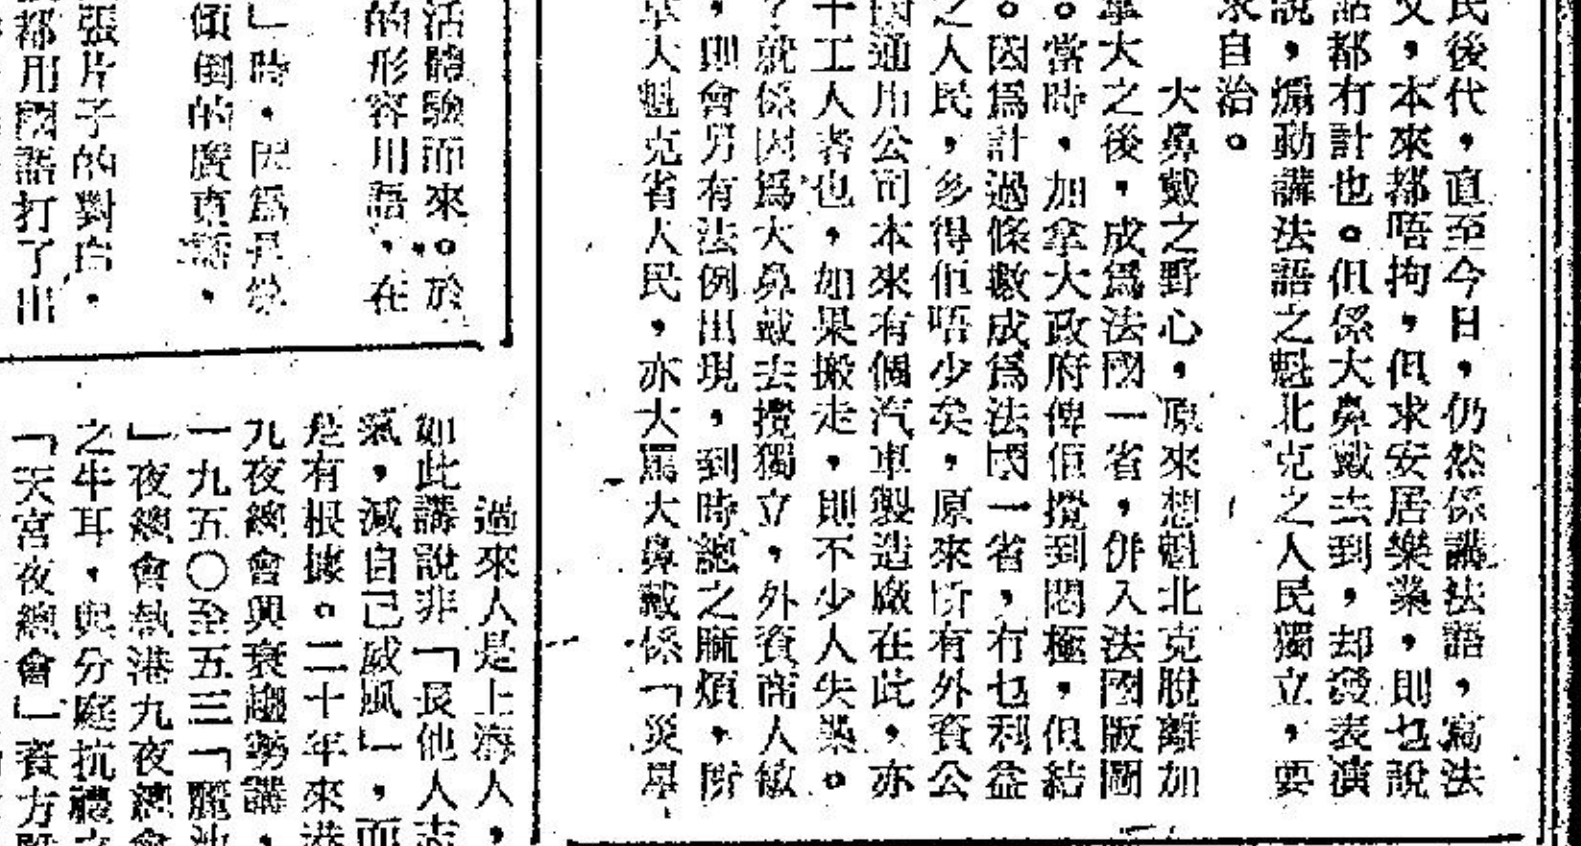 民後代，直至今日，仍然係講法語，寫法
文，本來都唔拘，但求安居樂業，則乜說
話都冇計也。但係大鼻戴去到，却發表演
說，煽動講法語之魁北克之人民獨立，要
求自治。
大鼻戴之野心，原來想魁北克脫離加
拿大之後，成爲法國一省，併入法國版圖
。當時，加拿大政府俾佢攪到悶極，但結
。因爲計過條數成爲法國一省，冇乜利益
之人民，多得佢唔少矣，原來所有外資公
通用公司本來有個汽車製造廠在此，亦
十工人者也，如果搬走，則不少人失業。
？就係因爲大鼻戴去攪獨立，外資商人敏
，則會另有法例出現，到時總之麻煩，所
拿大魁克省人民，亦大罵大鼻戴係「災星
活體驗而來。於
的形容用語，在
」時，因爲是從
傾倒的廣東話，
張片子的對白，
都用國語打了出
過來人是上海人，
如此講說非「長他人志
氣，減自己威風」，而
是有根據。二十年來港
九夜總會興衰趨勢講，
一九五〇至五三「麗池
」夜總會執港九夜總會
之牛耳，與分庭抗禮之
「天宮夜總會」資方